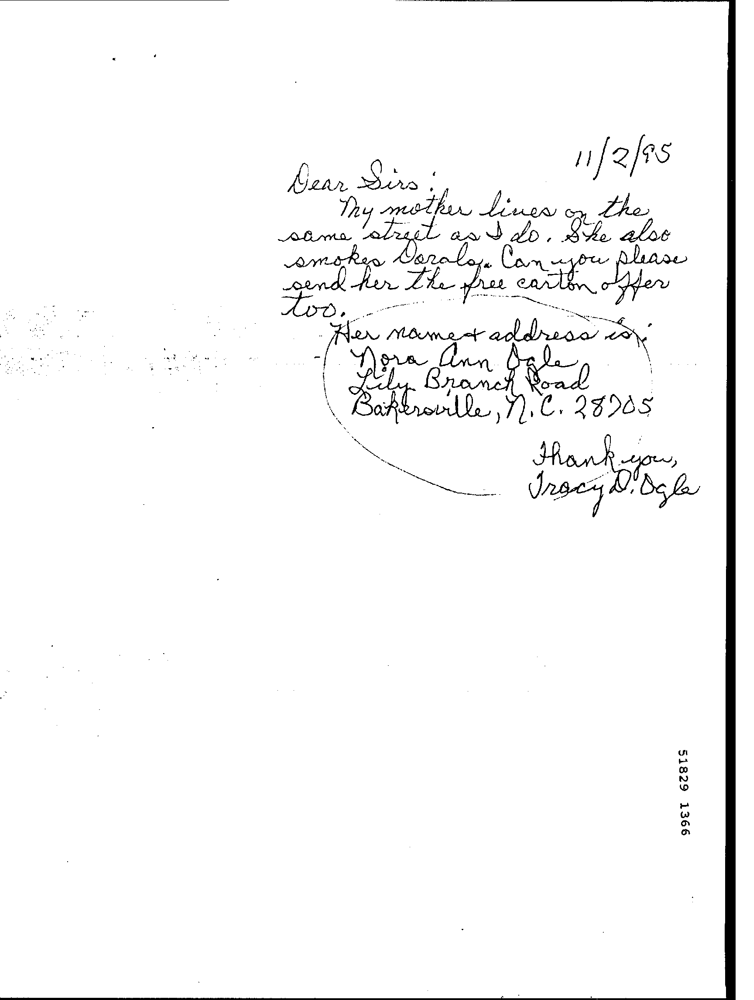 11/2/95
Dear Sirs:
My mother lives on the
same street as I do. She also
smokes Dorals. Can you please
send her the free carton offer
too.
Her name & address is:
Nora Ann Ogle
Lily Branch Road
Bakersville, N.C. 28705
Thank you,
Tracy D. Ogle
51829 1366